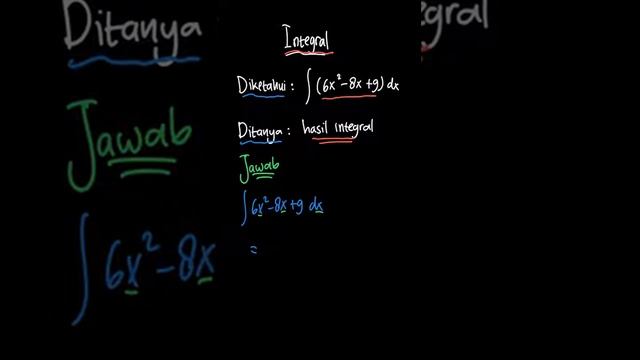 Integral
Diketahui : ∫ (6x² - 8x + 9) dx
Ditanya : hasil integral
Jawab
∫ 6x² - 8x + 9 dx
=
Ditanya
Jawab
∫ 6x² - 8x
egral